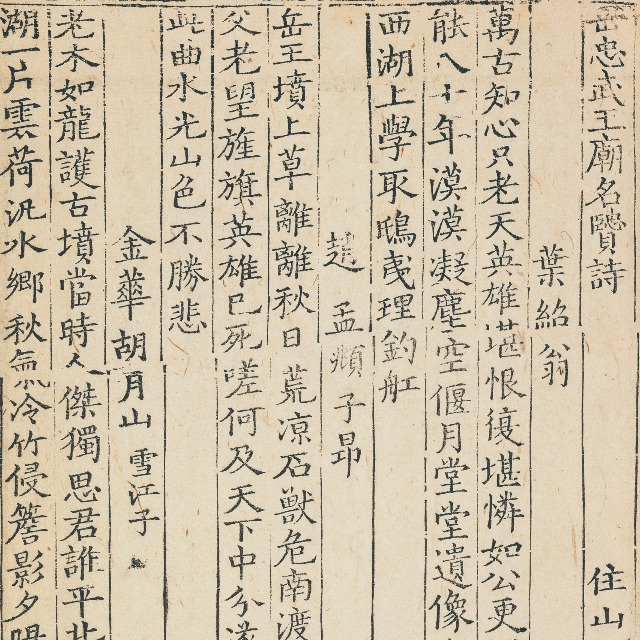 岳忠武王廟名賢詩 住山
葉紹翁
萬古知心只老天英雄堪恨復堪憐如公更
能八十年漠漠凝塵空偃月堂堂遺像
西湖上學取鴟夷理釣舡
趙孟頫子昂
岳王墳上草離離秋日荒凉石獸危南渡
父老望旌旗英雄已死嗟何及天下中分
此曲水光山色不勝悲
金華胡月山 雪江子
老木如龍護古墳當時人傑獨思君誰平北
湖一片雲荷汎水鄉秋氣冷竹侵簷影夕